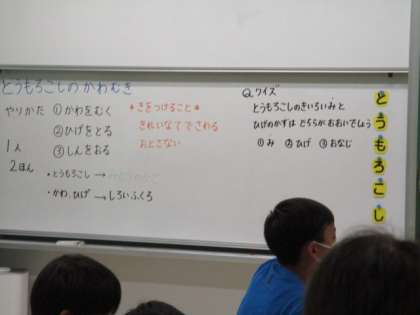 とうもろこしのかわむき
やりかた ①かわをむく
②ひげをとる
③しんをおる
1人
2ほん
・とうもろこし →
・かわ、ひげ → しろいふくろ
*きをつけること*
きれいなてでさわる
おとさない
Q.クイズ
とうもろこしのきいろいみと
ひげのかずは どちらが おおいでしょう
①み ②ひげ ③おなじ
とうもろこし